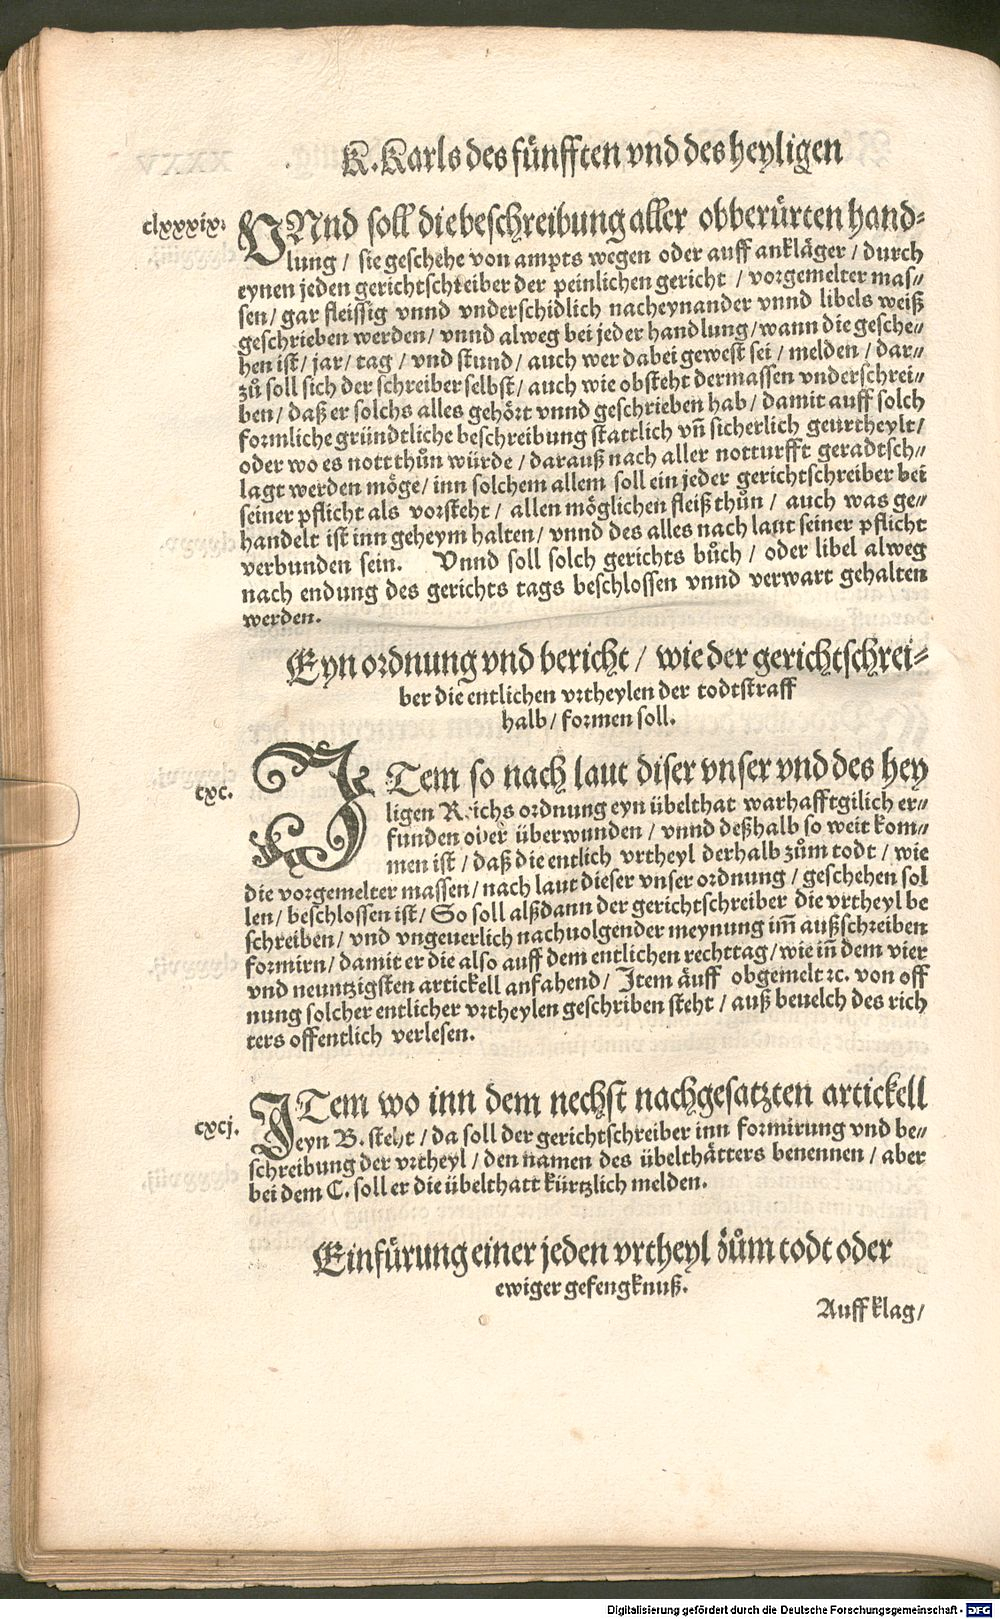 K. Karls des fünfften vnd des heyligen
clxxxix.
VNnd soll die beschreibung aller obberürten hand=
lung / sie geschehe von ampts wegen oder auff ankläger / durch
eynen jeden gerichtschreiber der peinlichen gericht / vorgemelter mas=
sen / gar fleissig vnnd vnderschidlich nacheynander vnnd libels weiß
geschrieben werden / vnnd alweg bei jeder handlung / wann die gesche=
hen ist / jar / tag / vnd stund / auch wer dabei gewest sei / melden / dar=
zů soll sich der schreiber selbst / auch wie obsteht dermassen vnderschrei=
ben / daß er solchs alles gehört vnnd geschrieben hab / damit auff solch
formliche gründtliche beschreibung stattlich vñ sicherlich geurtheylt /
oder wo es nott thůn würde / darauß nach aller notturfft geradtsch=
lagt werden möge / inn solchem allem soll ein jeder gerichtschreiber bei
seiner pflicht als vorsteht / allen möglichen fleiß thůn / auch was ge=
handelt ist inn geheym halten / vnnd des alles nach laut seiner pflicht
verbunden sein. Vnnd soll solch gerichts bůch / oder libel alweg
nach endung des gerichts tags beschlossen vnnd verwart gehalten
werden.
Eyn ordnung vnd bericht / wie der gerichtschrei=
ber die entlichen vrtheylen der todtstraff
halb / formen soll.
cxc.
JTem so nach laut diser vnser vnd des hey
ligen Reichs ordnung eyn übelthat warhafftgilich er=
funden oder überwunden / vnnd deßhalb so weit kom=
men ist / daß die entlich vrtheyl derhalb zům todt / wie
die vorgemelter massen / nach laut dieser vnser ordnung / geschehen sol
len / beschlossen ist / So soll alßdann der gerichtschreiber die vrtheyl be
schreiben / vnd vngeuerlich nachuolgender meynung im̃ außschreiben
formirn / damit er die also auff dem entlichen rechttag / wie iñ dem vier
vnd neuntzigsten artickell anfahend / Item auff obgemelt ꝛc. von off
nung solcher entlicher vrtheylen geschriben steht / auß beuelch des rich
ters offentlich verlesen.
cxcj.
JTem wo inn dem nechst nachgesatzten artickell
eyn B. steht / da soll der gerichtschreiber inn formirung vnd be=
schreibung der vrtheyl / den namen des übelthätters benennen / aber
bei dem C. soll er die übelthatt kürtzlich melden.
Einfürung einer jeden vrtheyl zům todt oder
ewiger gefengknuß.
Auff klag /
Digitalisierung gefördert durch die Deutsche Forschungsgemeinschaft - DFG